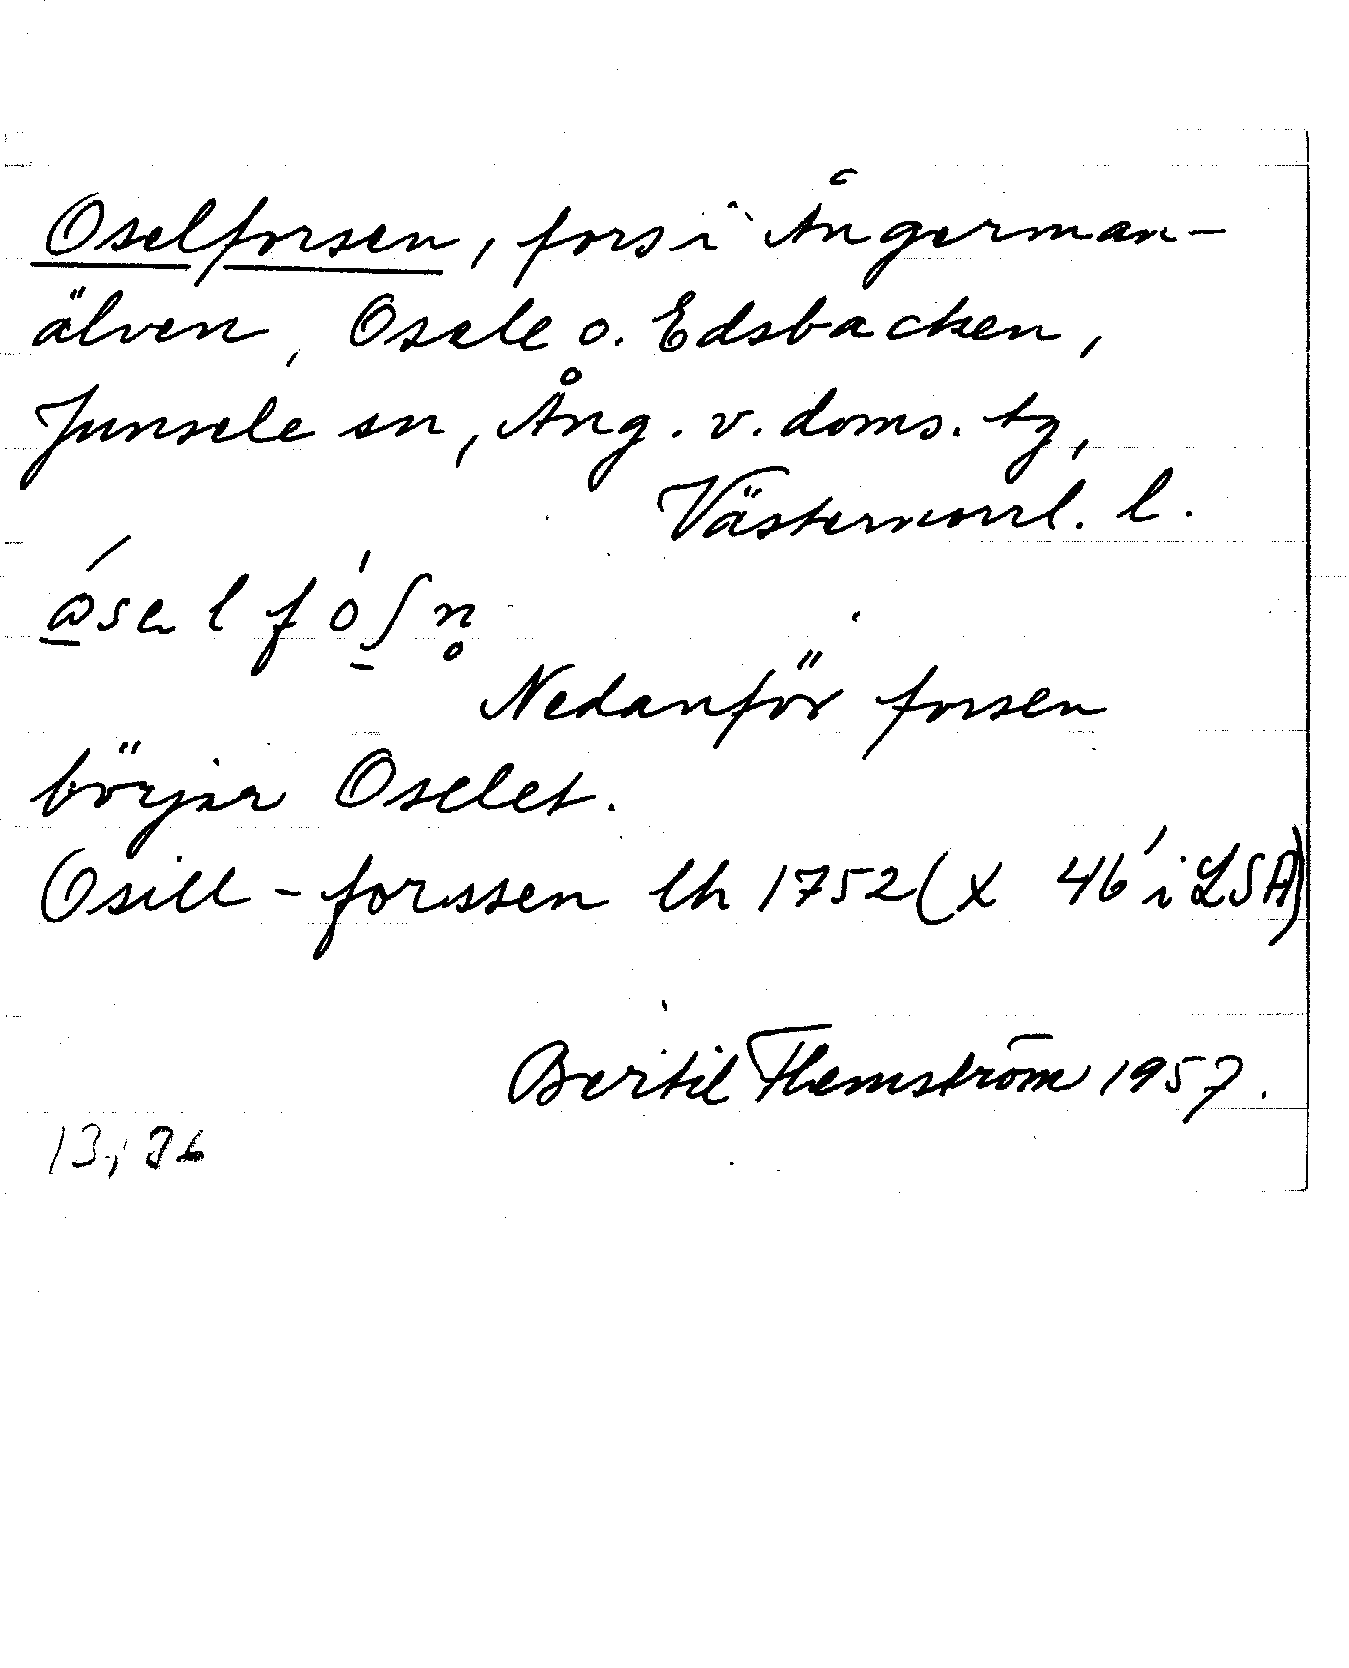 Oselforsen, fors i Ångerman-
älven, Osele o. Edsbacken,
Junsele sn, Ång. v. doms. tg,
Västernorrl. l.
Nedanför forsen
börjar Oselet.
Osill-forssen lh 1752 (X 46' i LSA)
Bertil Flemström 1957.